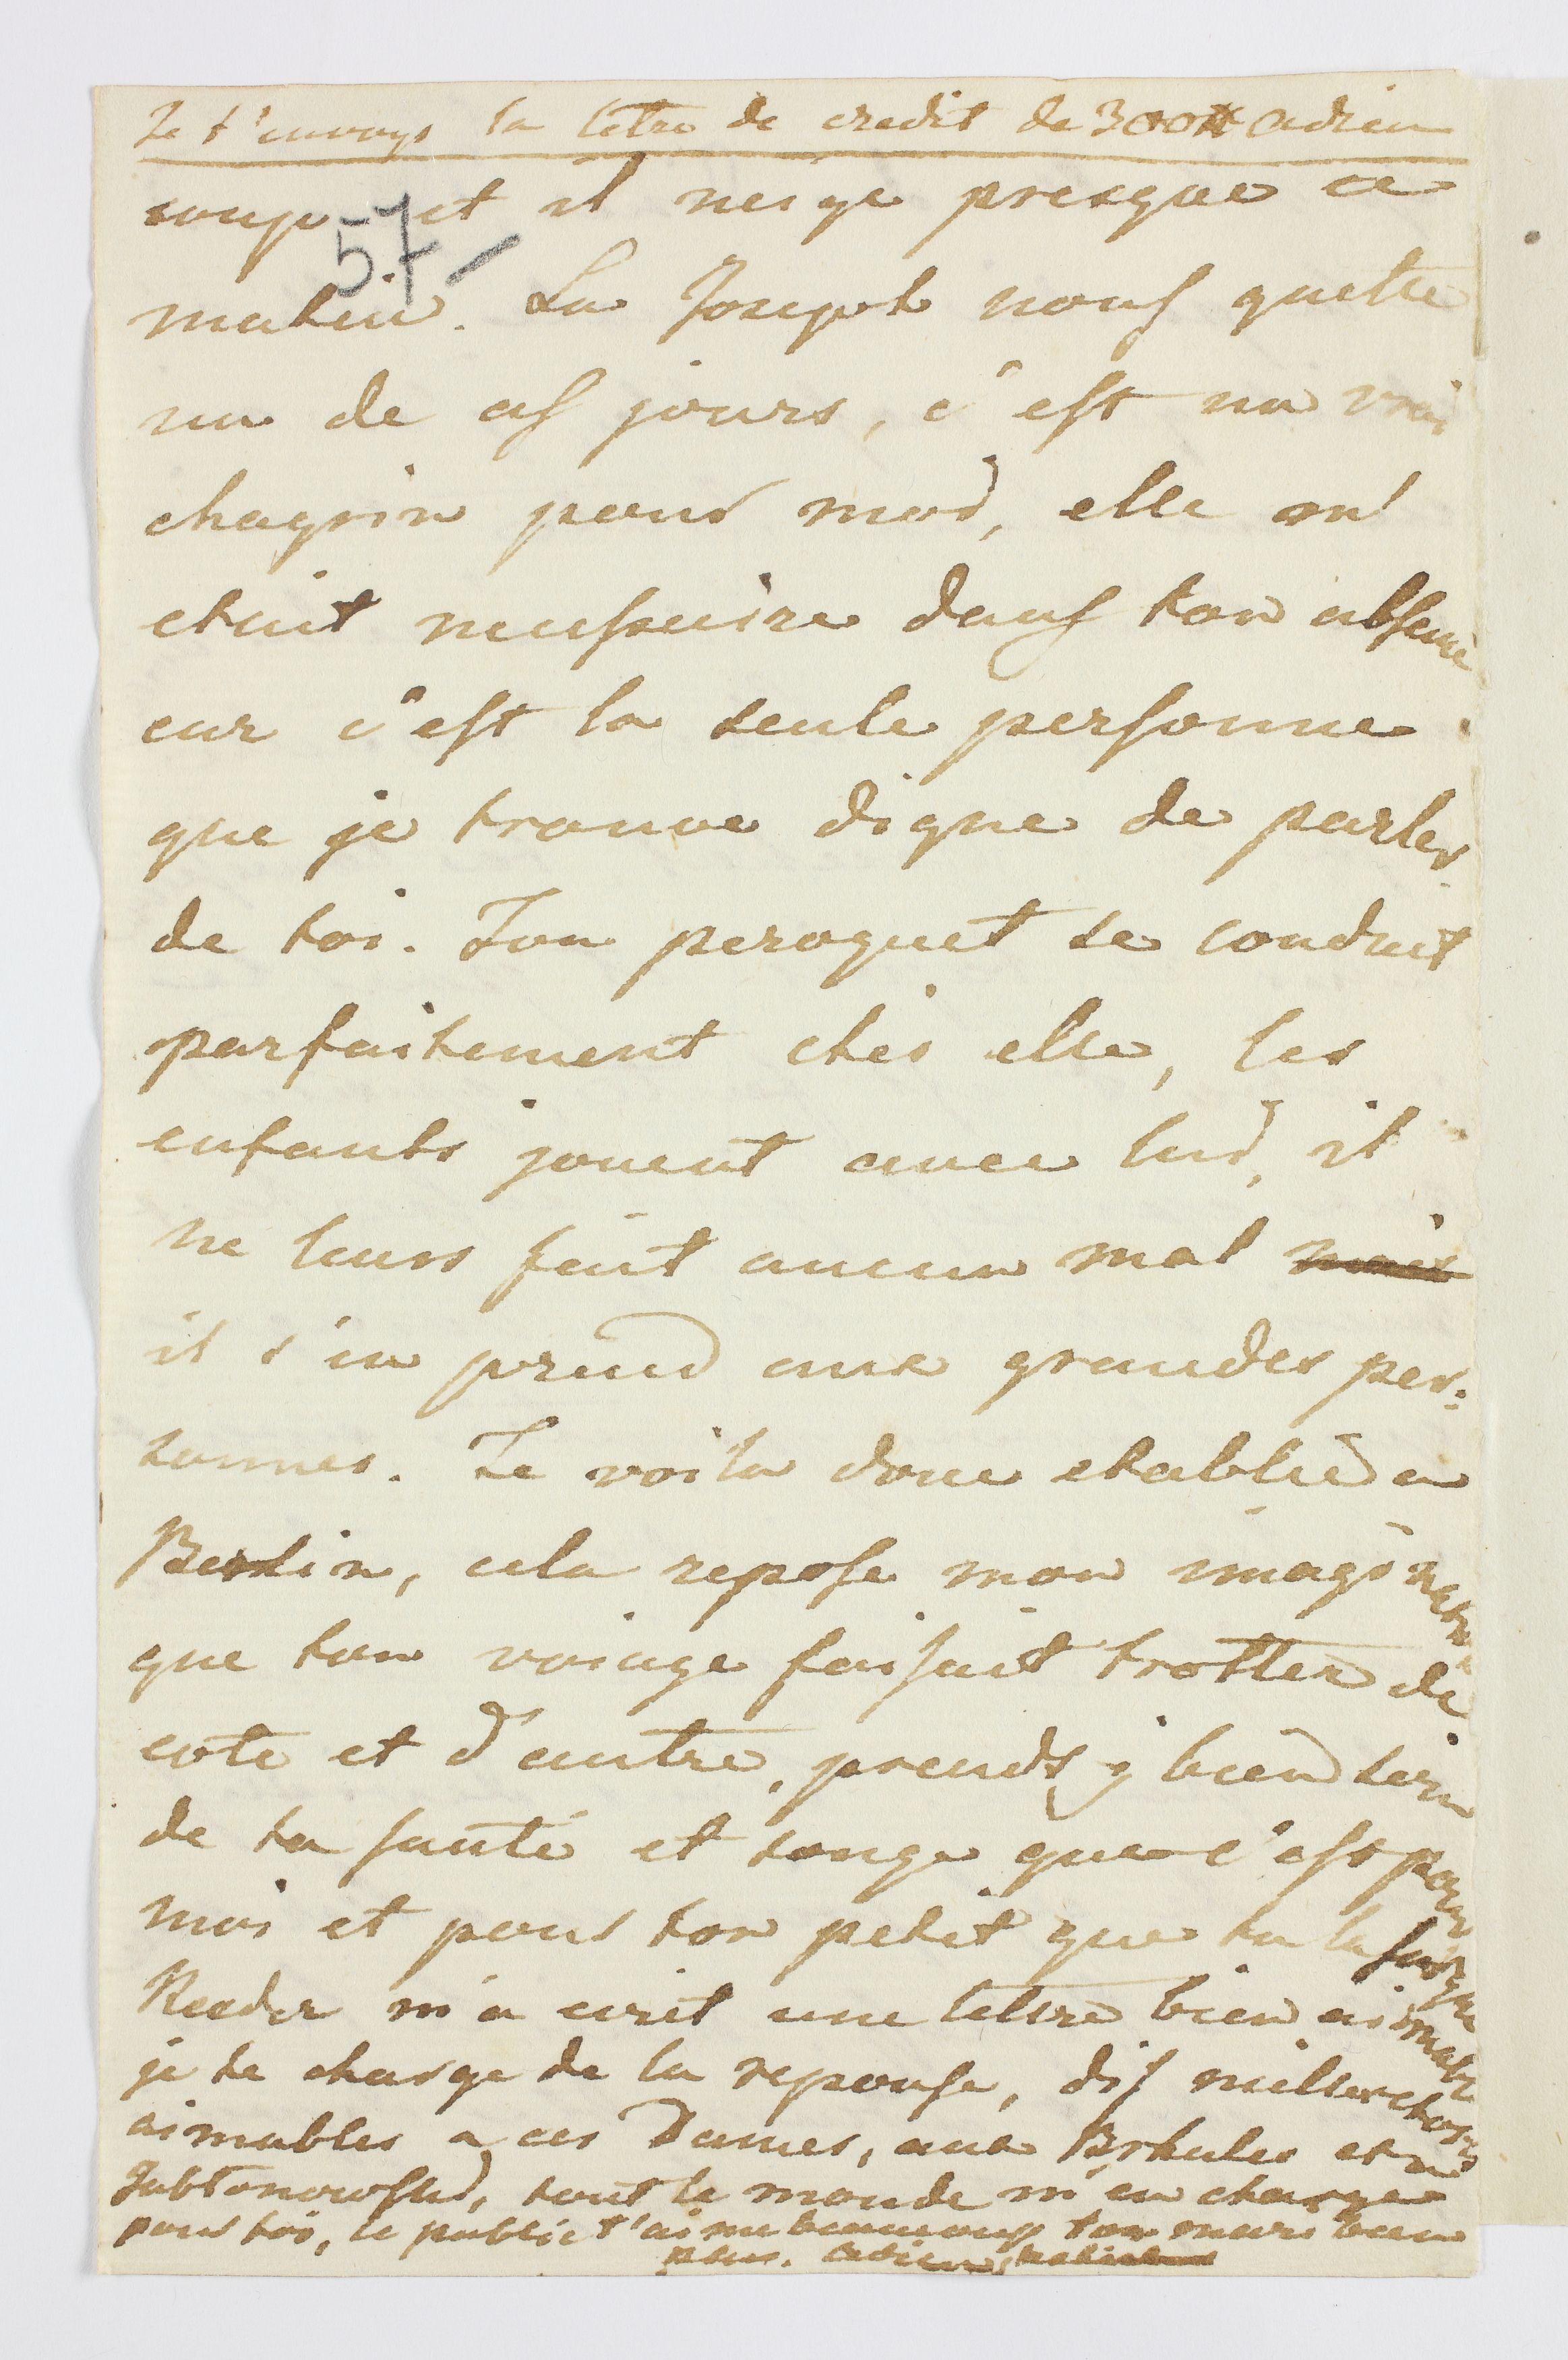 Je t'envoys la letre de credit de 300# adieu
coup et il neige presque ce
57 –
matin. La Joseph nous quitte
un de ces jours, c'est un vrai
chagrin pour moi, elle m'
etait nessesaire dans ton absence
car c'est la seule personne
que je trouve digne de parler
de toi. Ton peroquet se conduit
parfaitement chés elle, les
enfants jouent avec lui, il
ne leurs fait aucun mal mais
il s'en prend aux grandes per:
sonnes. Te voila donc etablie a
Berlin, cela repose mon imagination
que ton voiage faisait trotter de
coté et d'autre, prends y bien soin
de ta santé et songe que c'est pour
moi et pour ton petit que tu la soigne
Reeder m'a ecrit une lettre bien aimable
je te charge de la reponse, dis milles choses
aimables a ces Dames, aux Brhules et a
Jablonowski, tout le monde m'en charge
pour toi, le public t'aime beaucoup ton mari bien
plus. adieu